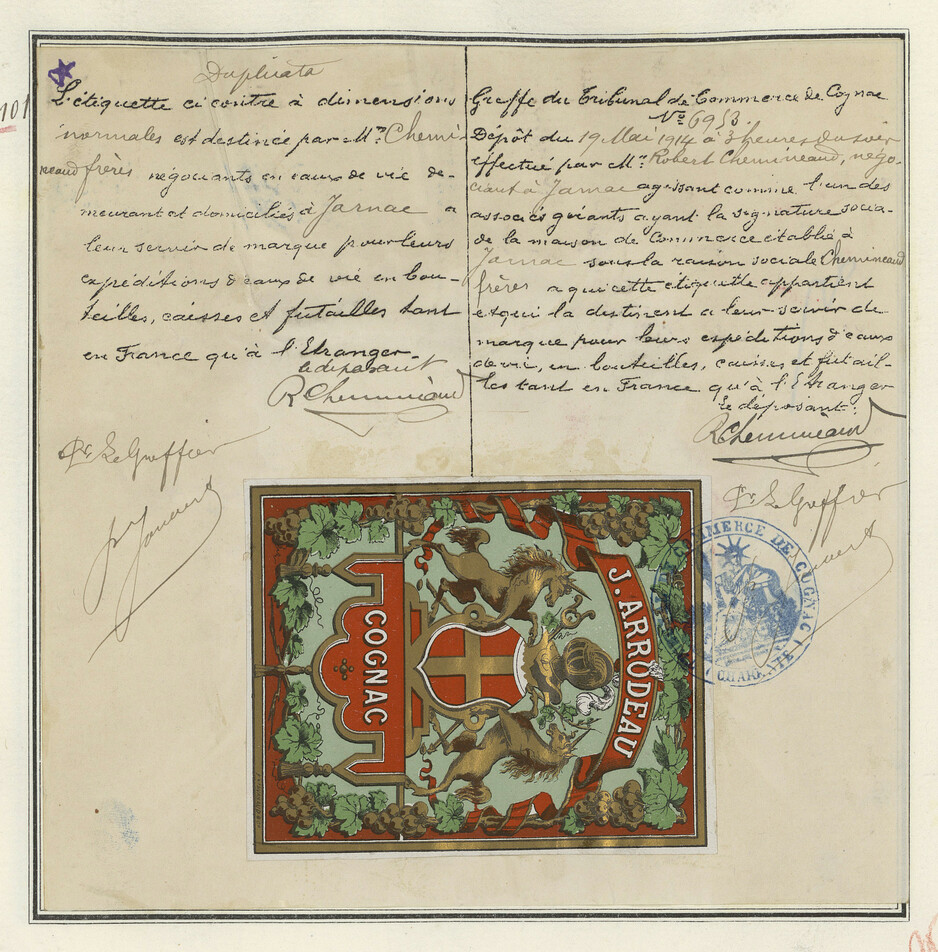 Duplicata
101
L'étiquette ci contre à dimensions
normales est destinée par Mrs Chemi-
neaud frères négociants en eaux de vie de-
meurant et domiciliés à Jarnac a
leur servir de marque pour leurs
expéditions d'eaux de vie en bou-
teilles, caisses et futailles tant
en France qu'à l'Etranger.
le déposant
RChemineaud
Pr Le Greffier
Greffe du Tribunal de Commerce de Cognac
No 6953.
Dépôt du 19 Mai 1914 à 3 heures du soir
effectué par Mr Robert Chemineaud, négo-
ciant à Jarnac agissant comme l'un des
associés gérants ayant la signature socia-
de la maison de Commerce établie à
Jarnac sous la raison sociale Chemineaud
frères a qui cette étiquette appartient
et qui la destinent a leur servir de
marque pour leurs expéditions d'eaux
de vie, en bouteilles, caisses et futail-
les tant en France qu'à l'Etranger
Le déposant:
RChemineaud
Pr Le Greffier
COMMERCE DE COGNAC
CHARENTE
J. ARRODEAU
COGNAC